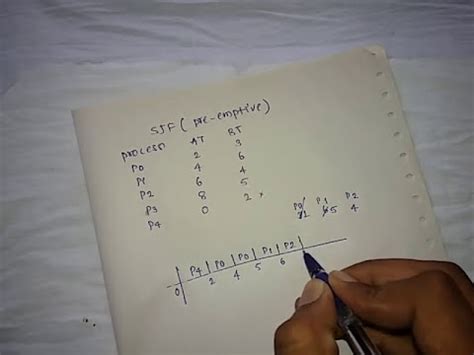 SJF ( pre-emptive)
process AT BT
P0 2 3
P1 4 6
P2 6 4
P3 8 5
P4 0 2
P0 P1 P2
5 4
P4 P0 P0 P1 P2
0 2 4 5 6